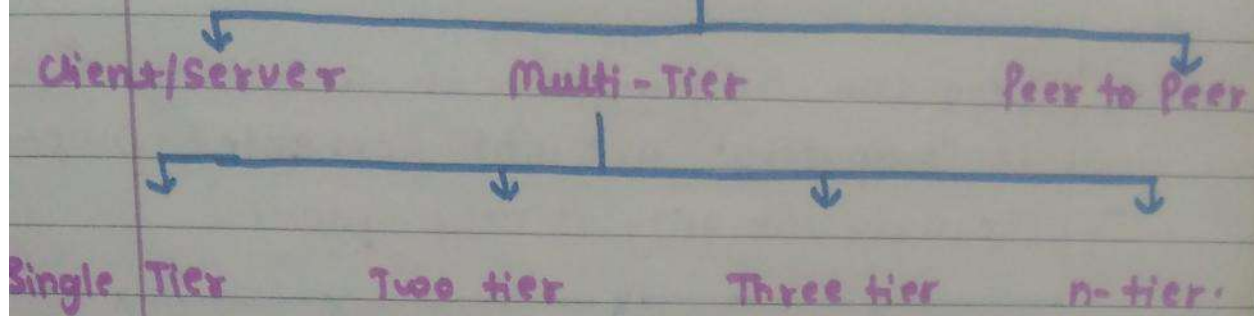 Client/Server Multi-Tier Peer to Peer
Single Tier Two tier Three tier n-tier.